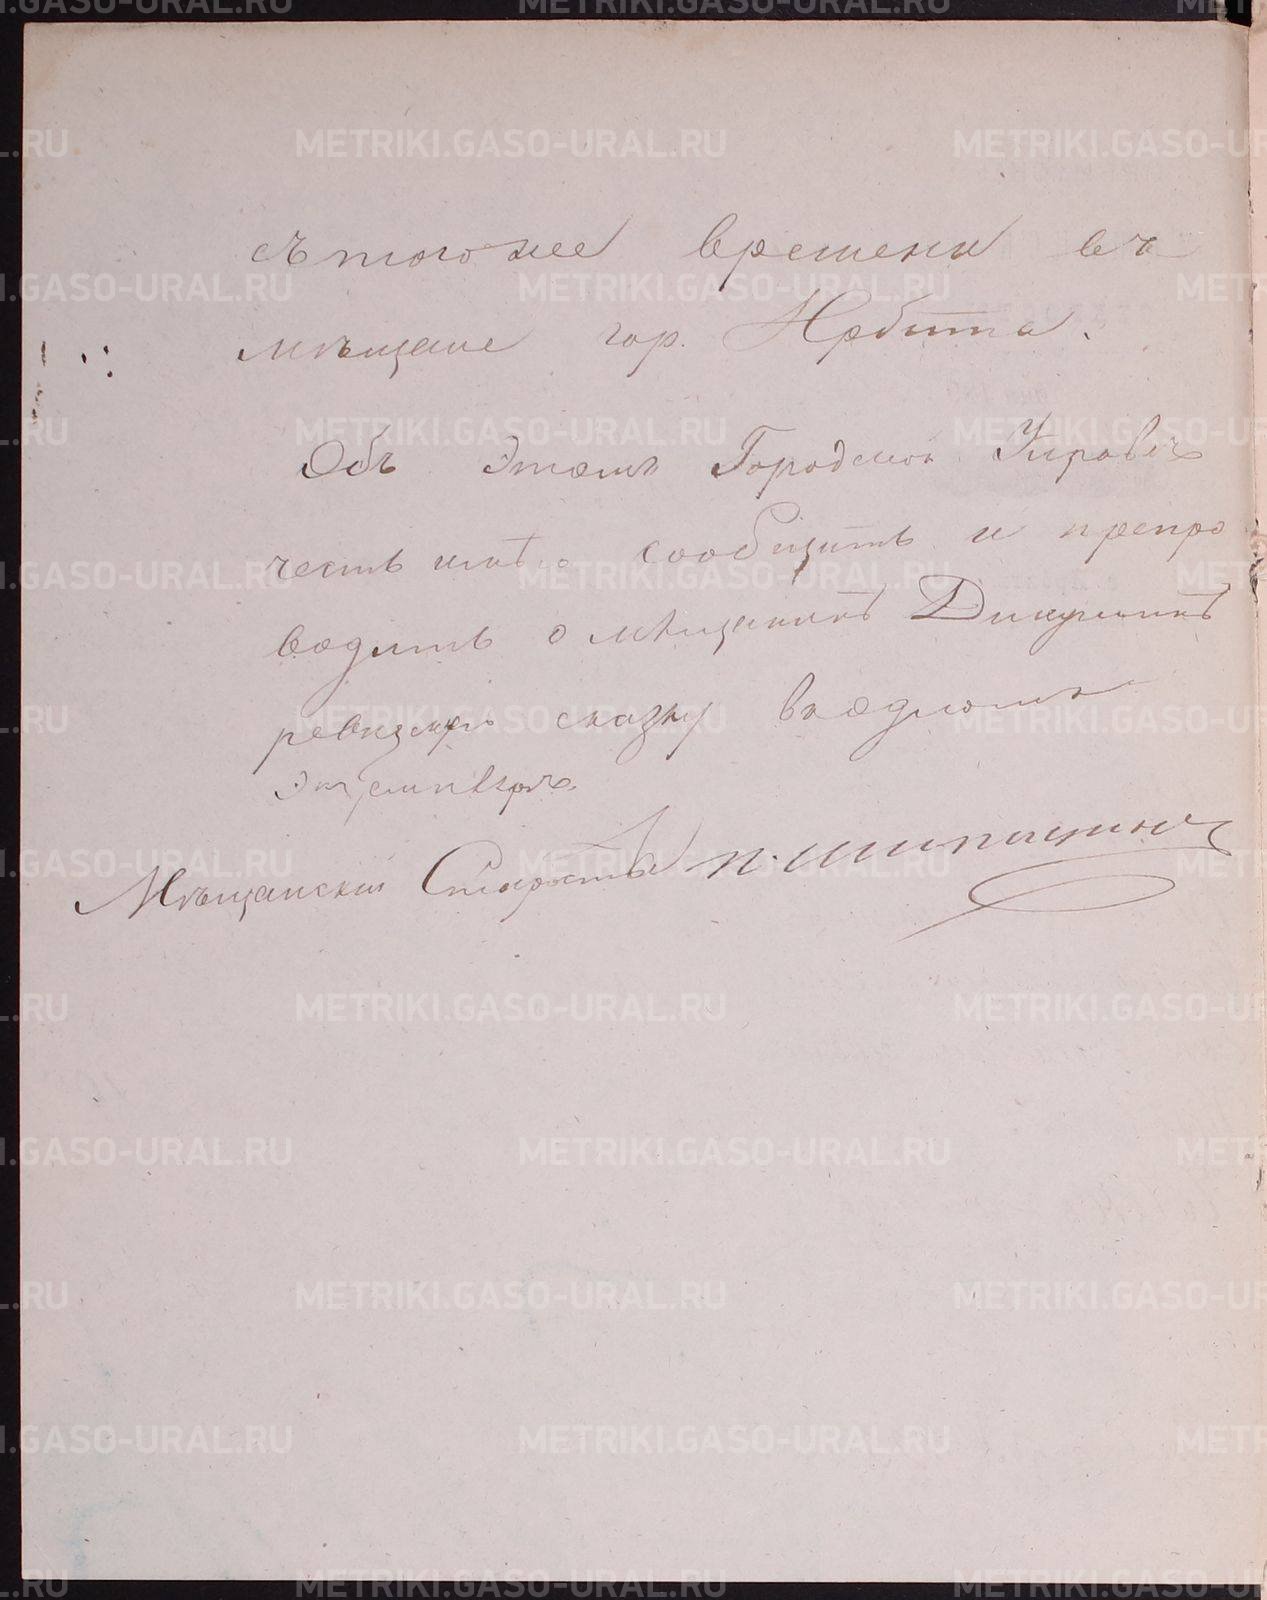 съ того же времени въ
мѣщане гор. Ирбита.
Объ этомъ Городской Управѣ
честь имѣю сообщить и препро
водить о мѣщанинѣ Дикушинѣ
ревизскую сказку въ одномъ
экземплярѣ.
Мѣщанский Староста П. Шипицинъ
METRIKI.GASO-URAL.RU